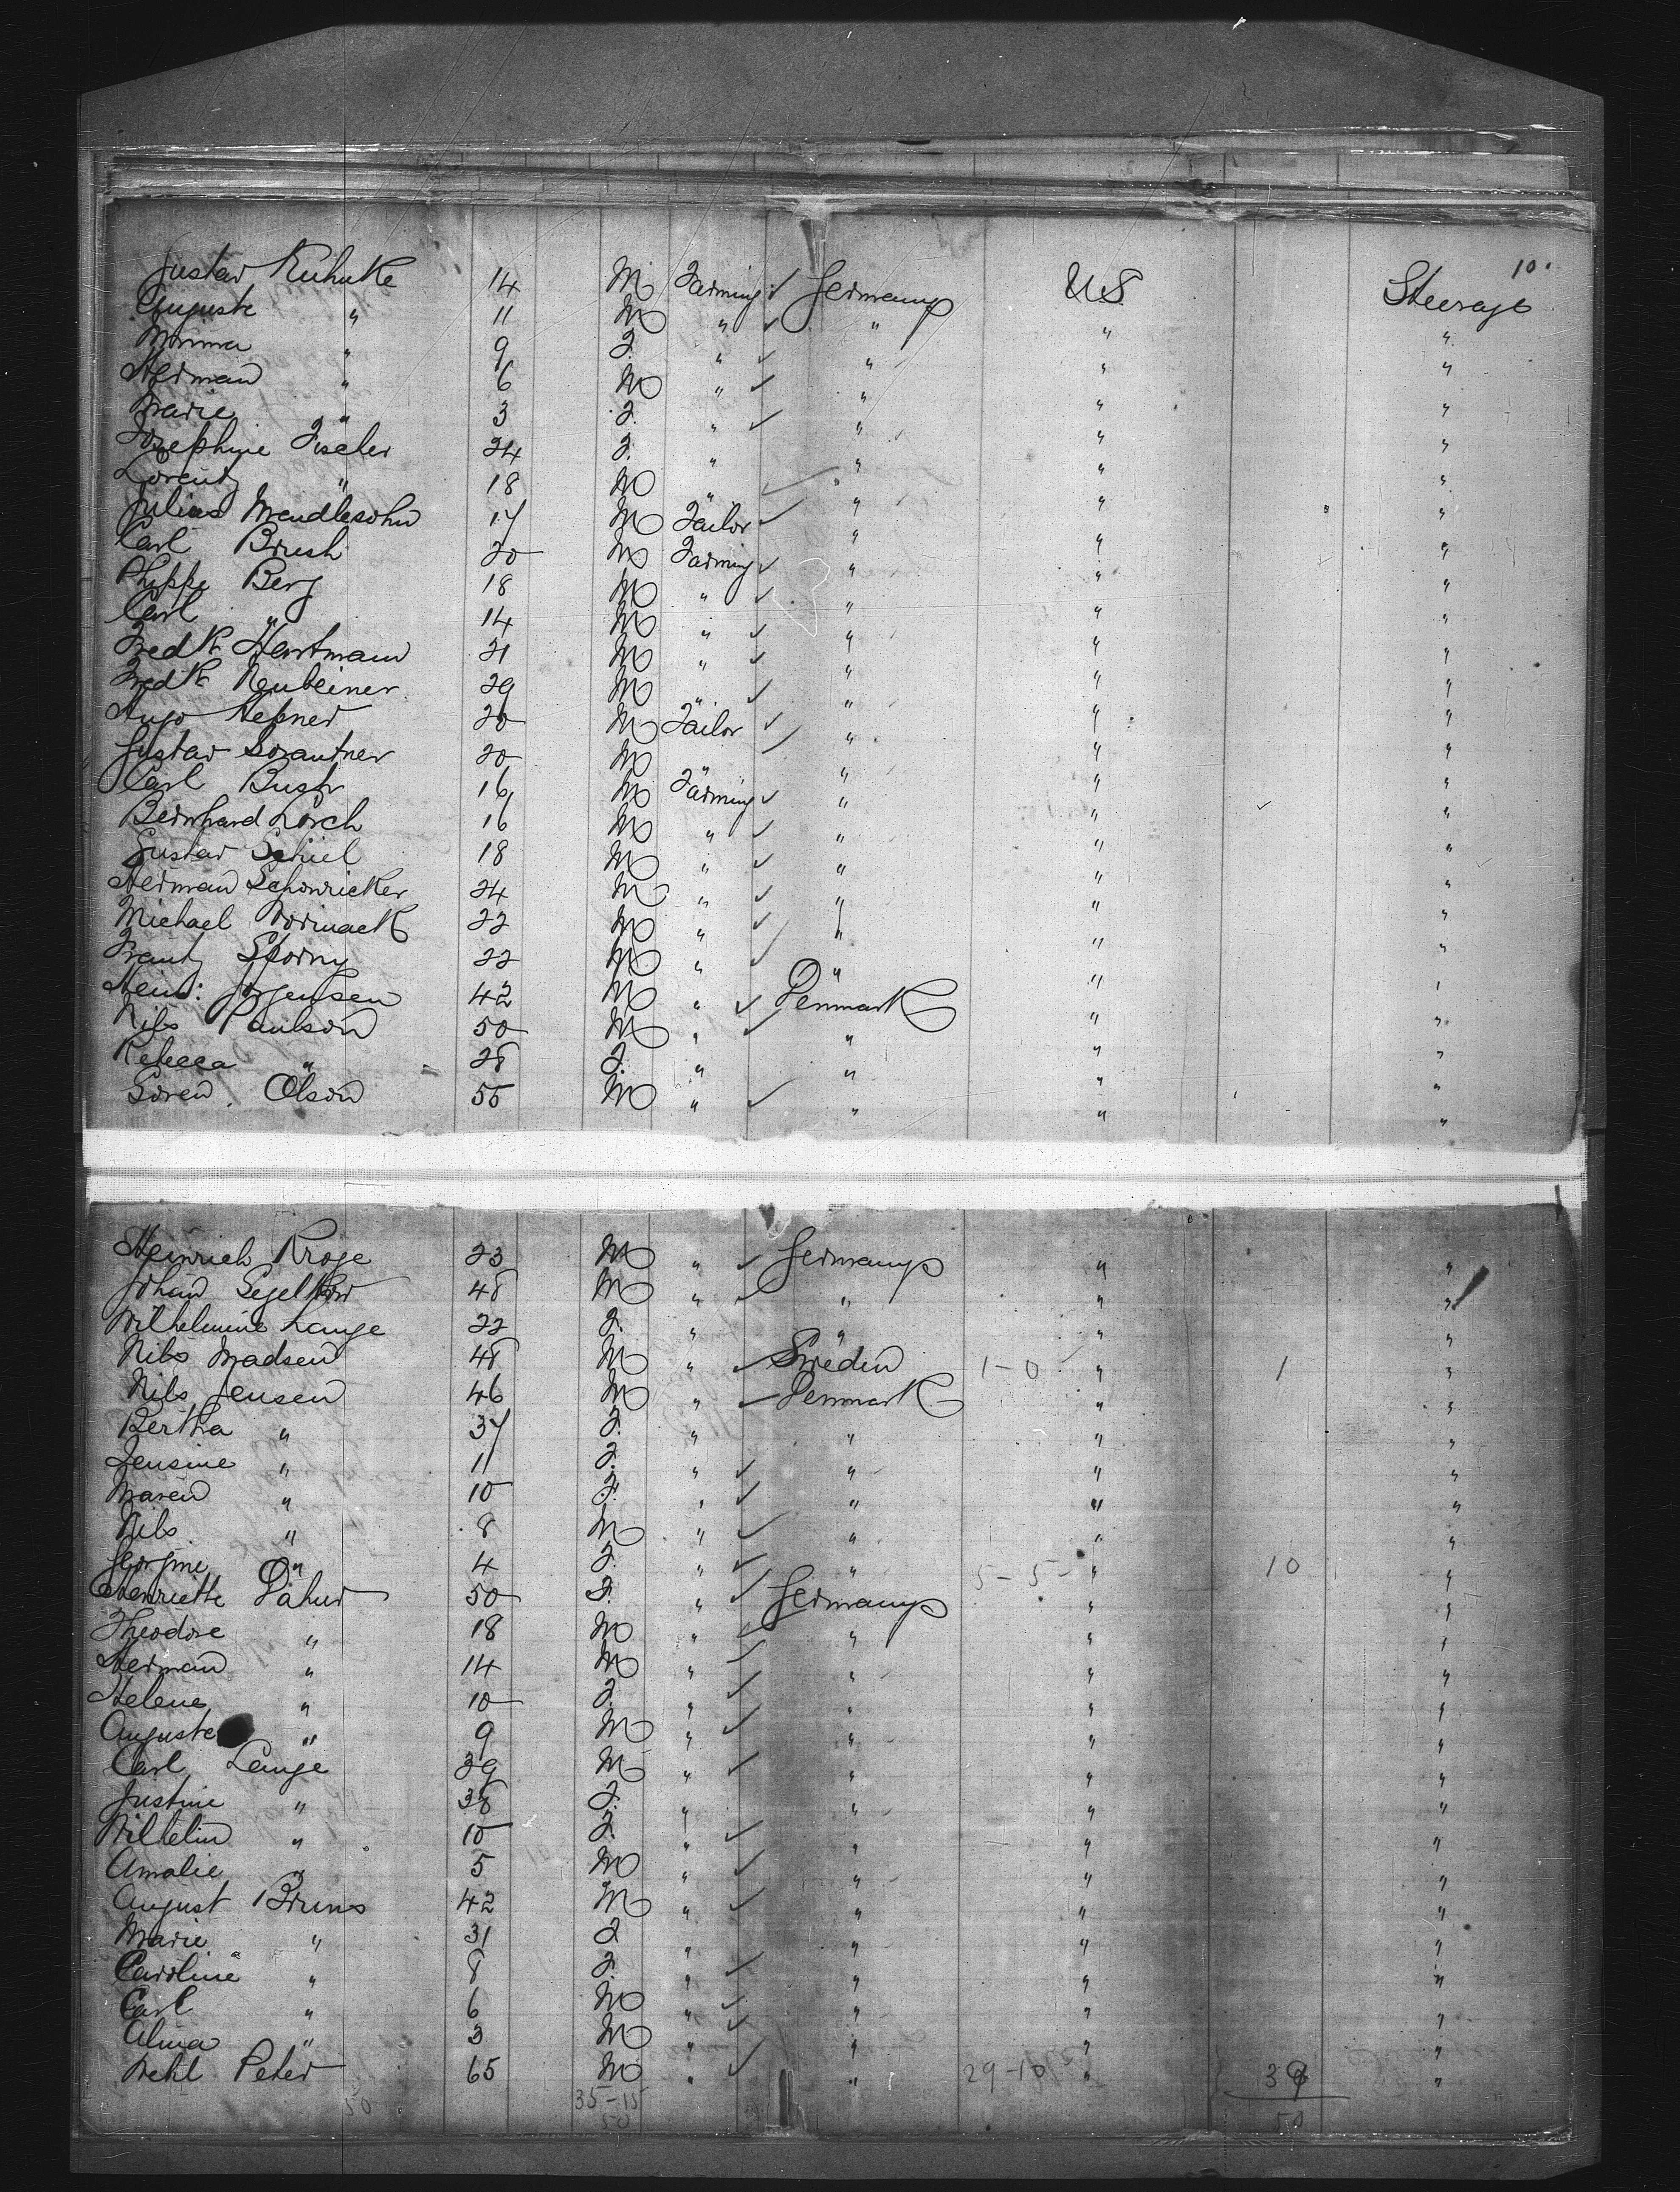 10.
Gustav Kuhnke 14 M Farming Germany U.S. Steerage
Auguste " 11 M " " " "
Minna " 9 F. " " " "
Herman " 6 M " " " "
Marie " 3 F. " " " "
Josephine Fischer 24 F. " " " "
Lorentz " 18 M " " " "
Julius Mendlesohn 17 M Tailor " " "
Carl Brush 20 M Farming " " "
Phippe Berg 18 M " " " "
Carl " 14 M " " " "
Fredk Hartmann 21 M " " " "
Fredk Neubeiner 29 M " " " "
Hugo Hepner 20 M Tailor " " "
Gustav Sorautner 20 M " " " "
Carl 16 M Farming " " "
Bernhard Lorch 16 M " " " "
Gustav Schiel 18 M " " " "
Herman Schonricker 24 M " " " "
Michael Wormack 22 M " " " "
Frantz Skorny 22 M " " " "
Hein: Jorgensen 42 M " Denmark " "
Nils Paulson 50 M " " " "
Rebecca " 28 F. " " " "
Soren Olson 55 M " " " "
Heinrich Kroge 23 M " Germany " "
Johan Segelkow 48 M " " " "
Wilhelmine Lange 22 F. " " " "
Nils Madsen 48 M " Sweden 1-0 " 1 "
Nils Jensen 46 M " Denmark " "
Bertha " 37 F. " " " "
Jensine " 11 F. " " " "
Maren " 10 F. " " " "
Nils " 8 M " " " "
Georgine " 4 F. " " 5-5- " 10 "
Henriette Dahur 50 F. " Germany " "
Theodore " 18 M " " " "
Herman " 14 M " " " "
Helene " 10 F. " " " "
Auguste " 9 M " " " "
Carl Lange 39 M " " " "
Justine " 38 F. " " " "
Wilhelm " 10 F. " " " "
Amalie " 5 M " " " "
August Bruns 42 M " " " "
Marie " 31 F " " " "
Caroline " 8 F. " " " "
Carl " 6 M " " " "
Alma " 3 M " " " "
Wehl Peter 65 M " " 29-10 " 39 "
50 35-15 50
50